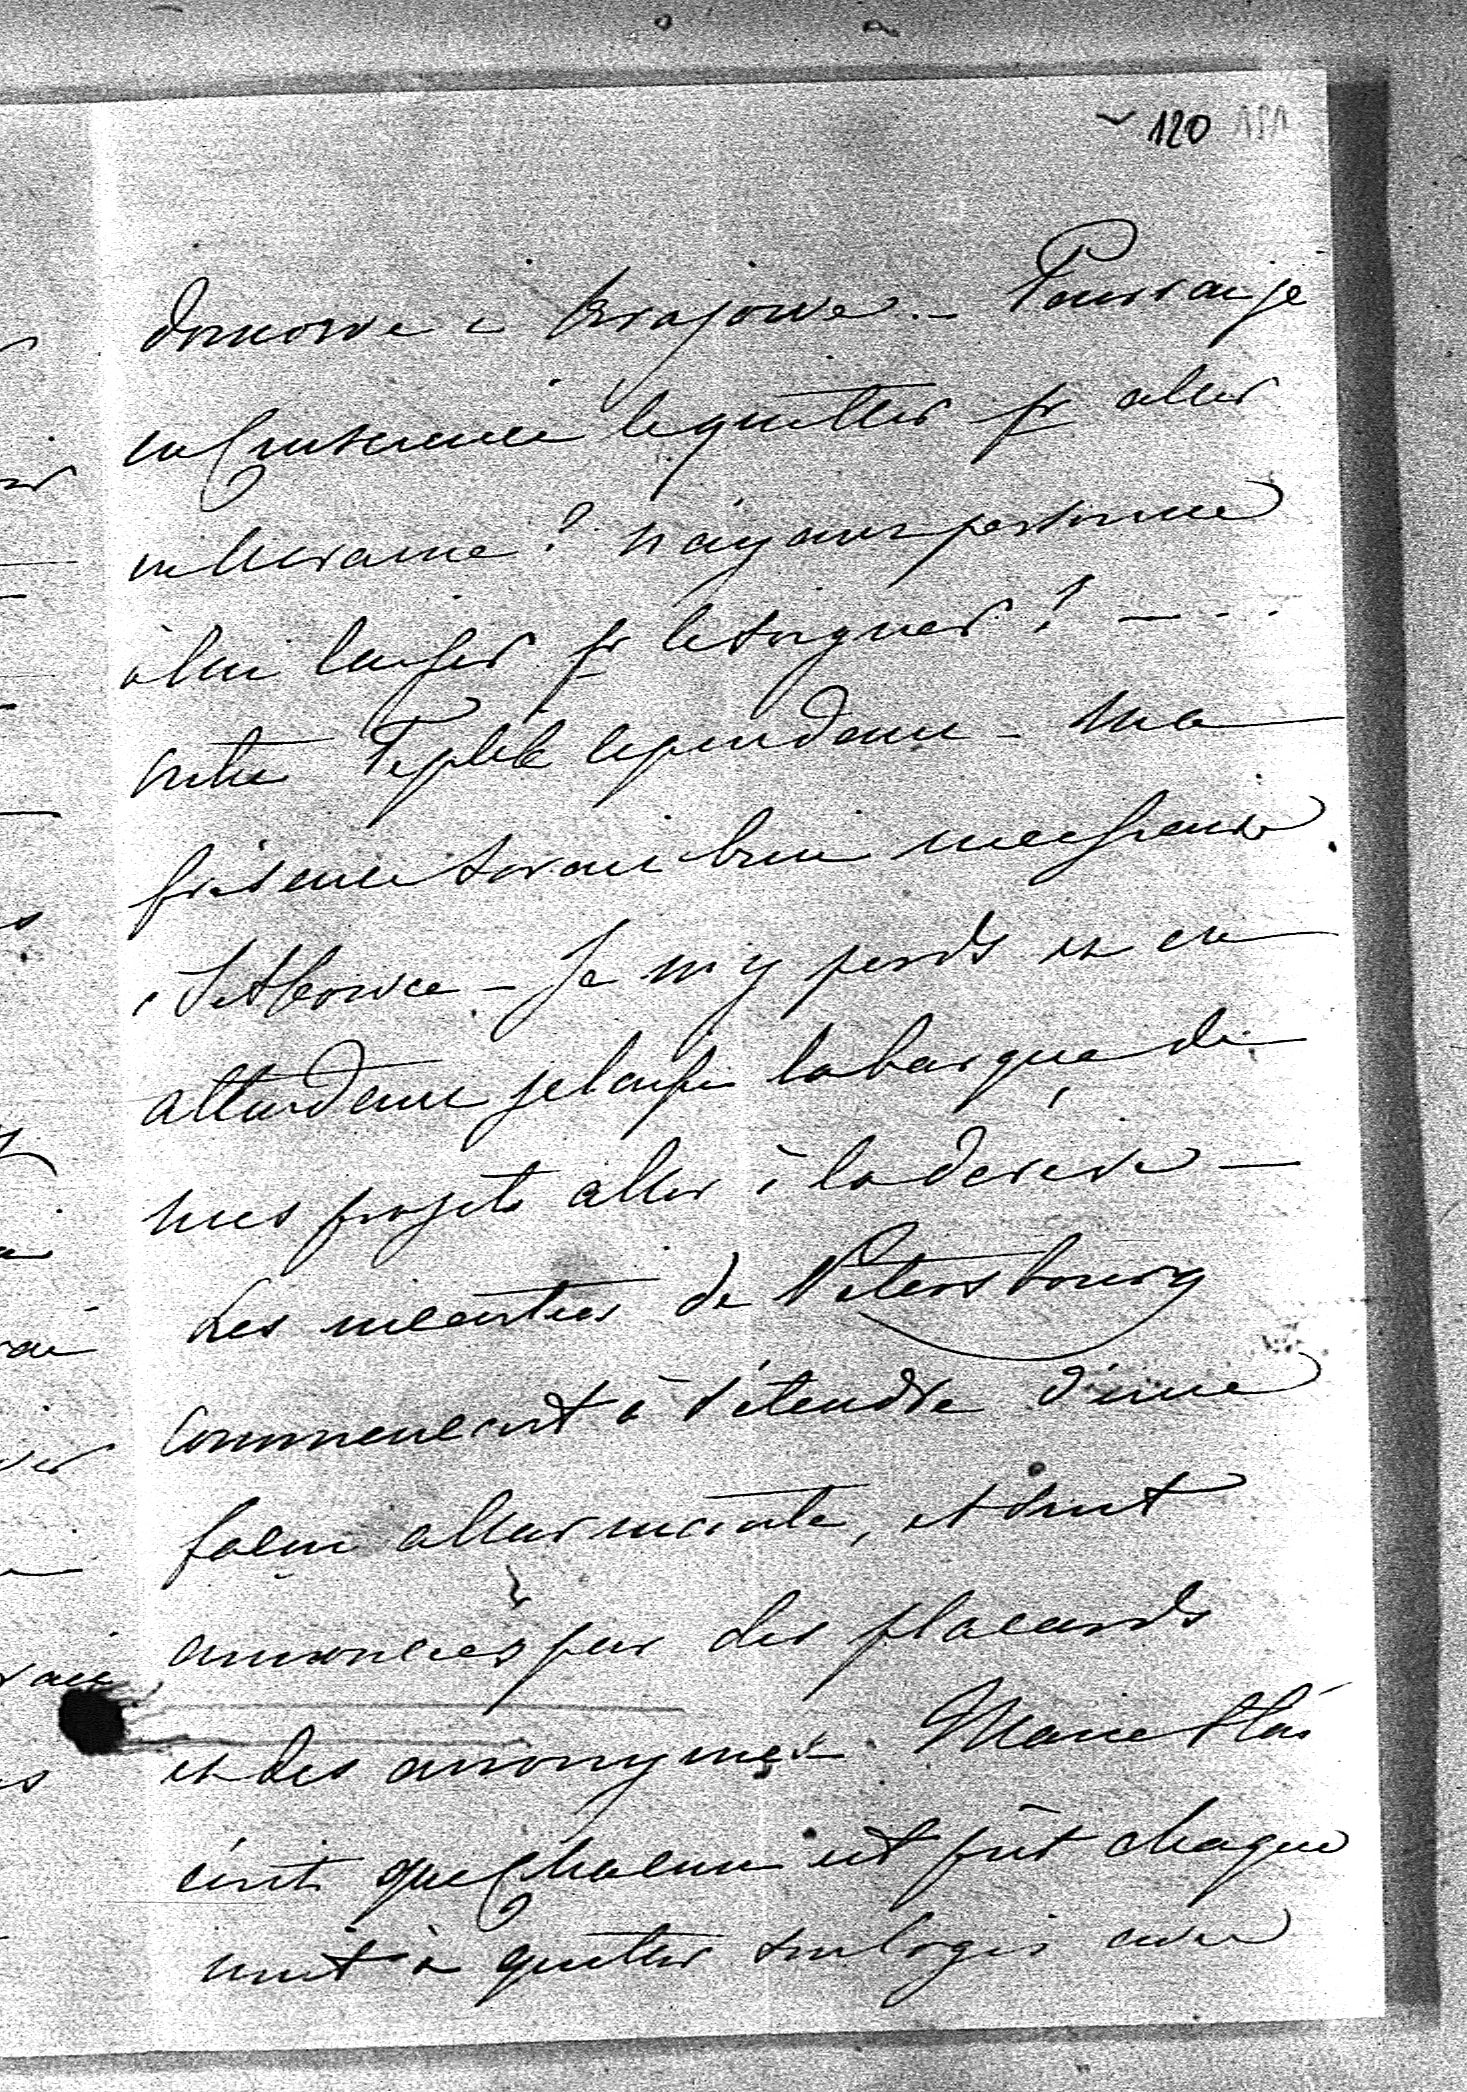 120 121
domowe i krajowe. – Pourrai je
en Conscience le quitter pr aller
en Ukraine? n'ayant personne
à lui laisser pr le soigner? – . . .
notre Teplik cependant – ma
présence serait bien nécessaire
à Sitkowce – Je m'y perds et en
attendant je laisse la barque de
mes projets aller à la dérive –
Les incendies de Petersbourg
commencent à s'étendre d'une
façon allarmante, et sont
annoncés par des placards
et des anonymes. Marie Max
écrit que Chacun est prêt chaque
nuit à quitter son logis avec